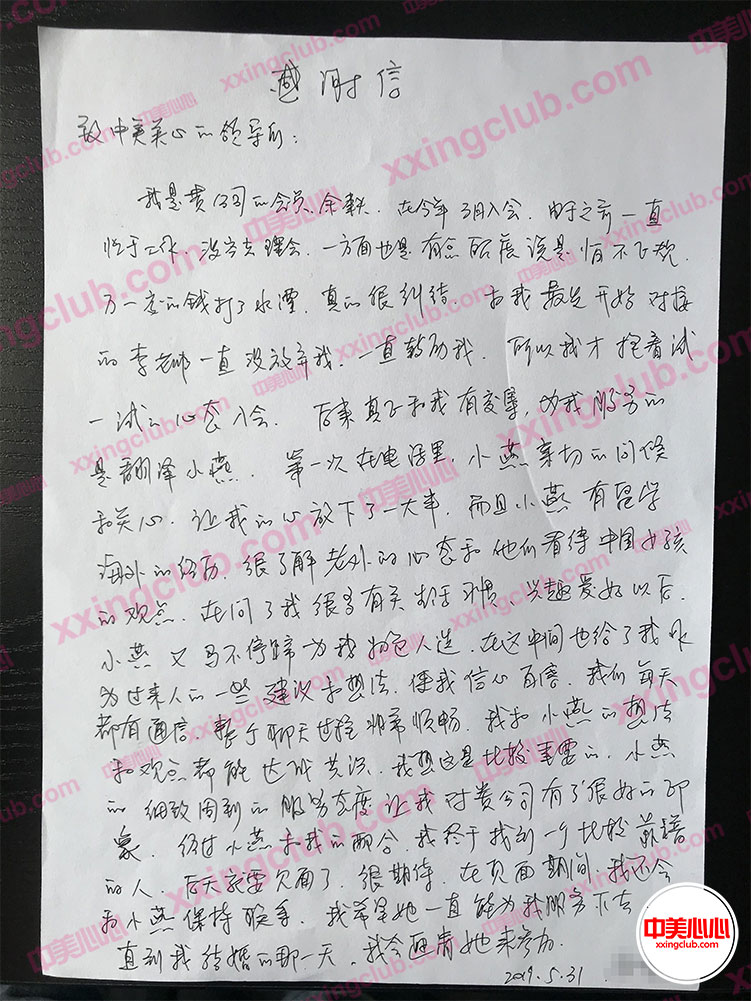 感谢信
致中美心心的领导们：
我是贵公司的会员余 在今年3月入会．由于之前一直
忙于工作．没方去理会．一方面也是有点 度说是 不
万一交的钱打了水漂．真的很纠结．由我最先开始对接
的李老师一直没放弃我．一直鼓励我．所以我才抱着试
一试的心态入会．后来真正和我有交集，为我服务的
是翻译小燕．第一次在电话里，小燕亲切的问候
和关心．让我的心放下了一大半．而且小燕有留学
海外的经历．很了解老外的心态和他们看待中国女孩
的观点．在问了我很多有关生活习惯、兴趣爱好以后．
小燕又马不停蹄为我物色人选．在这中间也给了我作
为过来人的一些建议和想法．使我信心百倍．我们每天
都有通信．整个聊天过程非常顺畅．我和小燕的想法
和观点都能达成共识．我想这是比较重要的．小燕
的细致周到的服务态度让我对贵公司有了很好的印
象．经过小燕和我的配合．我终于找到一个比较靠谱
的人．后天就要见面了．很期待．在见面期间．我还会
和小燕保持联系．我希望她一直能为我服务下去
直到我结婚的那一天．我会邀请她来参加．
2019.5.31
中美心心
xxingclub.com